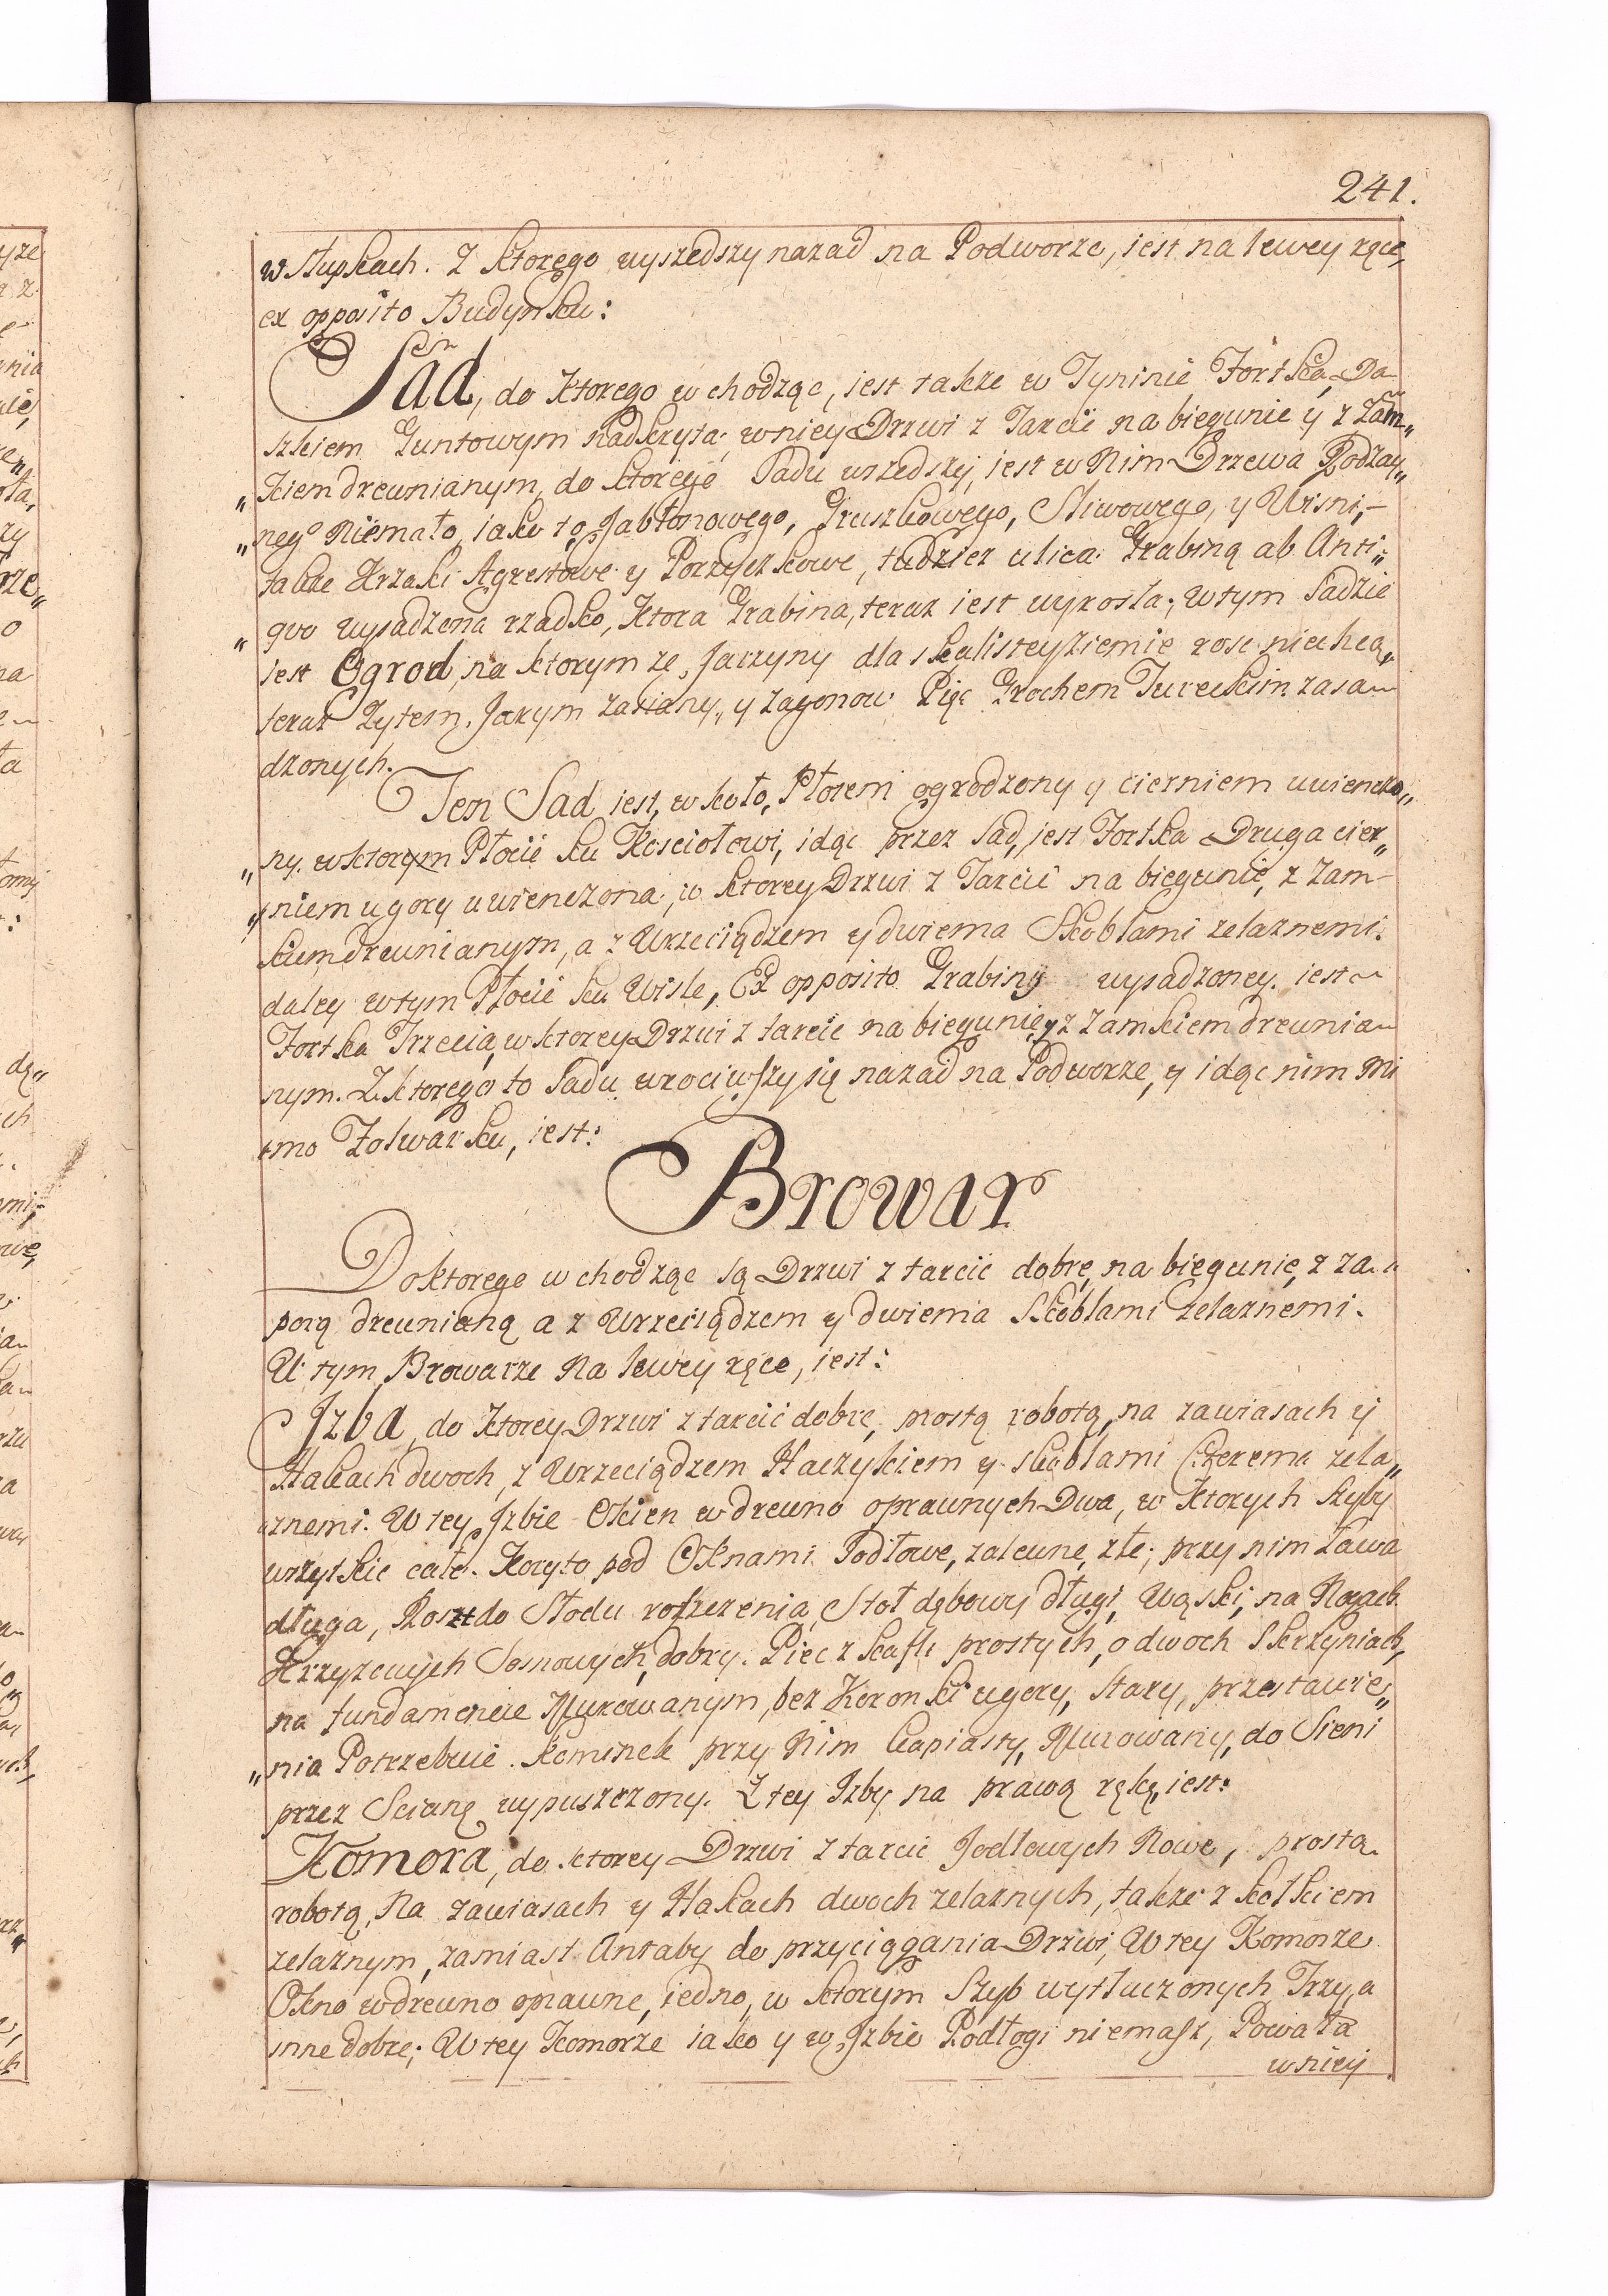 241.
w słupkach. Z ktorego wyszedszy nazad na Podworze, iest na lewey ręce,
ex opposito Budynku:
Sad, do ktorego wchodząc, iest także w Tyninie Fortka, Da-
szkiem Guntowym nadkryta; w niey Drzwi z Tarcic na biegunie y z Zam„
„kiem drewnianym, do ktorego Sadu wszedszy, iest w Nim Drzewa Rodzay„
„nego Niemało, iako to Jabłonowego, Gruszkowego, Sliwowego, y Wisni,-
także Krzaki Agrestowe y Porzyczkowe, tudziez ulica Grabiną ab Anti„
„quo wysadzona rzadko, ktora Grabina, teraz iest wyrosła; w tym Sadzie
iest Ogrod, na ktorym ze Jarzyny dla skalistey ziemie rosc niechcą,
teraz Zytem Jarym zasiany, y zagonow Pięc Grochem Tureckim zasa-
dzonych.
Ten Sad iest, w koło, Płotem ogrodzony y cierniem uwienczo„
„ny. w ktorym Płocie ku Kosciołowi, idąc przez Sad, iest Fortka Druga cier„
„niem u gory uwienczona; w ktorey Drzwi z Tarcic na biegunie, z Zam-
kiem drewnianym, a z Wrzeciądzem y dwiema Skoblami zelaznemi.
daley w tym Płocie ku Wisle, Ex opposito Grabiny wysadzoney. iest
Fortka Trzecia, w ktorey Drzwi z tarcic na biegunie, y z Zamkiem drewnia-
nym. Z ktorego to Sadu wrociwszy się nazad na Podworze, y idąc nim mi
mo Folwarku, iest:
Browar
Do ktorego wchodząc są Drzwi z tarcic dobre, na biegunie, z za-
porą drewnianą a z Wrzeciądzem y dwiema Skoblami zelaznemi.
W tym Browarze Na lewey ręce, iest:
Izba, do ktorey Drzwi z tarcic dobre, prostą robotą, na zawiasach y
Hakach dwoch, z Wrzeciądzem Haczykiem y skoblami Czterema zela„
znemi. W tey Izbie Okien w drewno oprawnych Dwa, w ktorych Szyby
wszytkie całe. Koryto pod Oknami Jodłowe, zalewne, złe; przy nim Ława
długa, Koszt do Słodu roszczenia, Stoł dębowy długi, Wąski, na Nogach
Krzyzowych Sosnowych, dobry. Piec z kafli prostych, o dwoch Skrzyniach,
na fundamencie Murowanym, bez Koronki u gory, Stary, przestawie„
„nia Potrzebuie. Kominek przy Nim kapiasty, Murowany, do Sieni
przez Scianę wypuszczony. Z tey Izby na prawą rękę, iest:
Komora, do ktorey Drzwi z tarcic Jodłowych Nowe, prostą
robotą, Na zawiasach y Hakach dwoch zelaznych, także z kołkiem
zelaznym, zamiast Antaby do przyciągania Drzwi; W tey Komorze
Okno w drewno oprawne, iedno, w ktorym Szyb wytłuczonych Trzy, a
inne dobre; W tey Komorze iako y w Izbie Podłogi niemasz, Powała
w niey